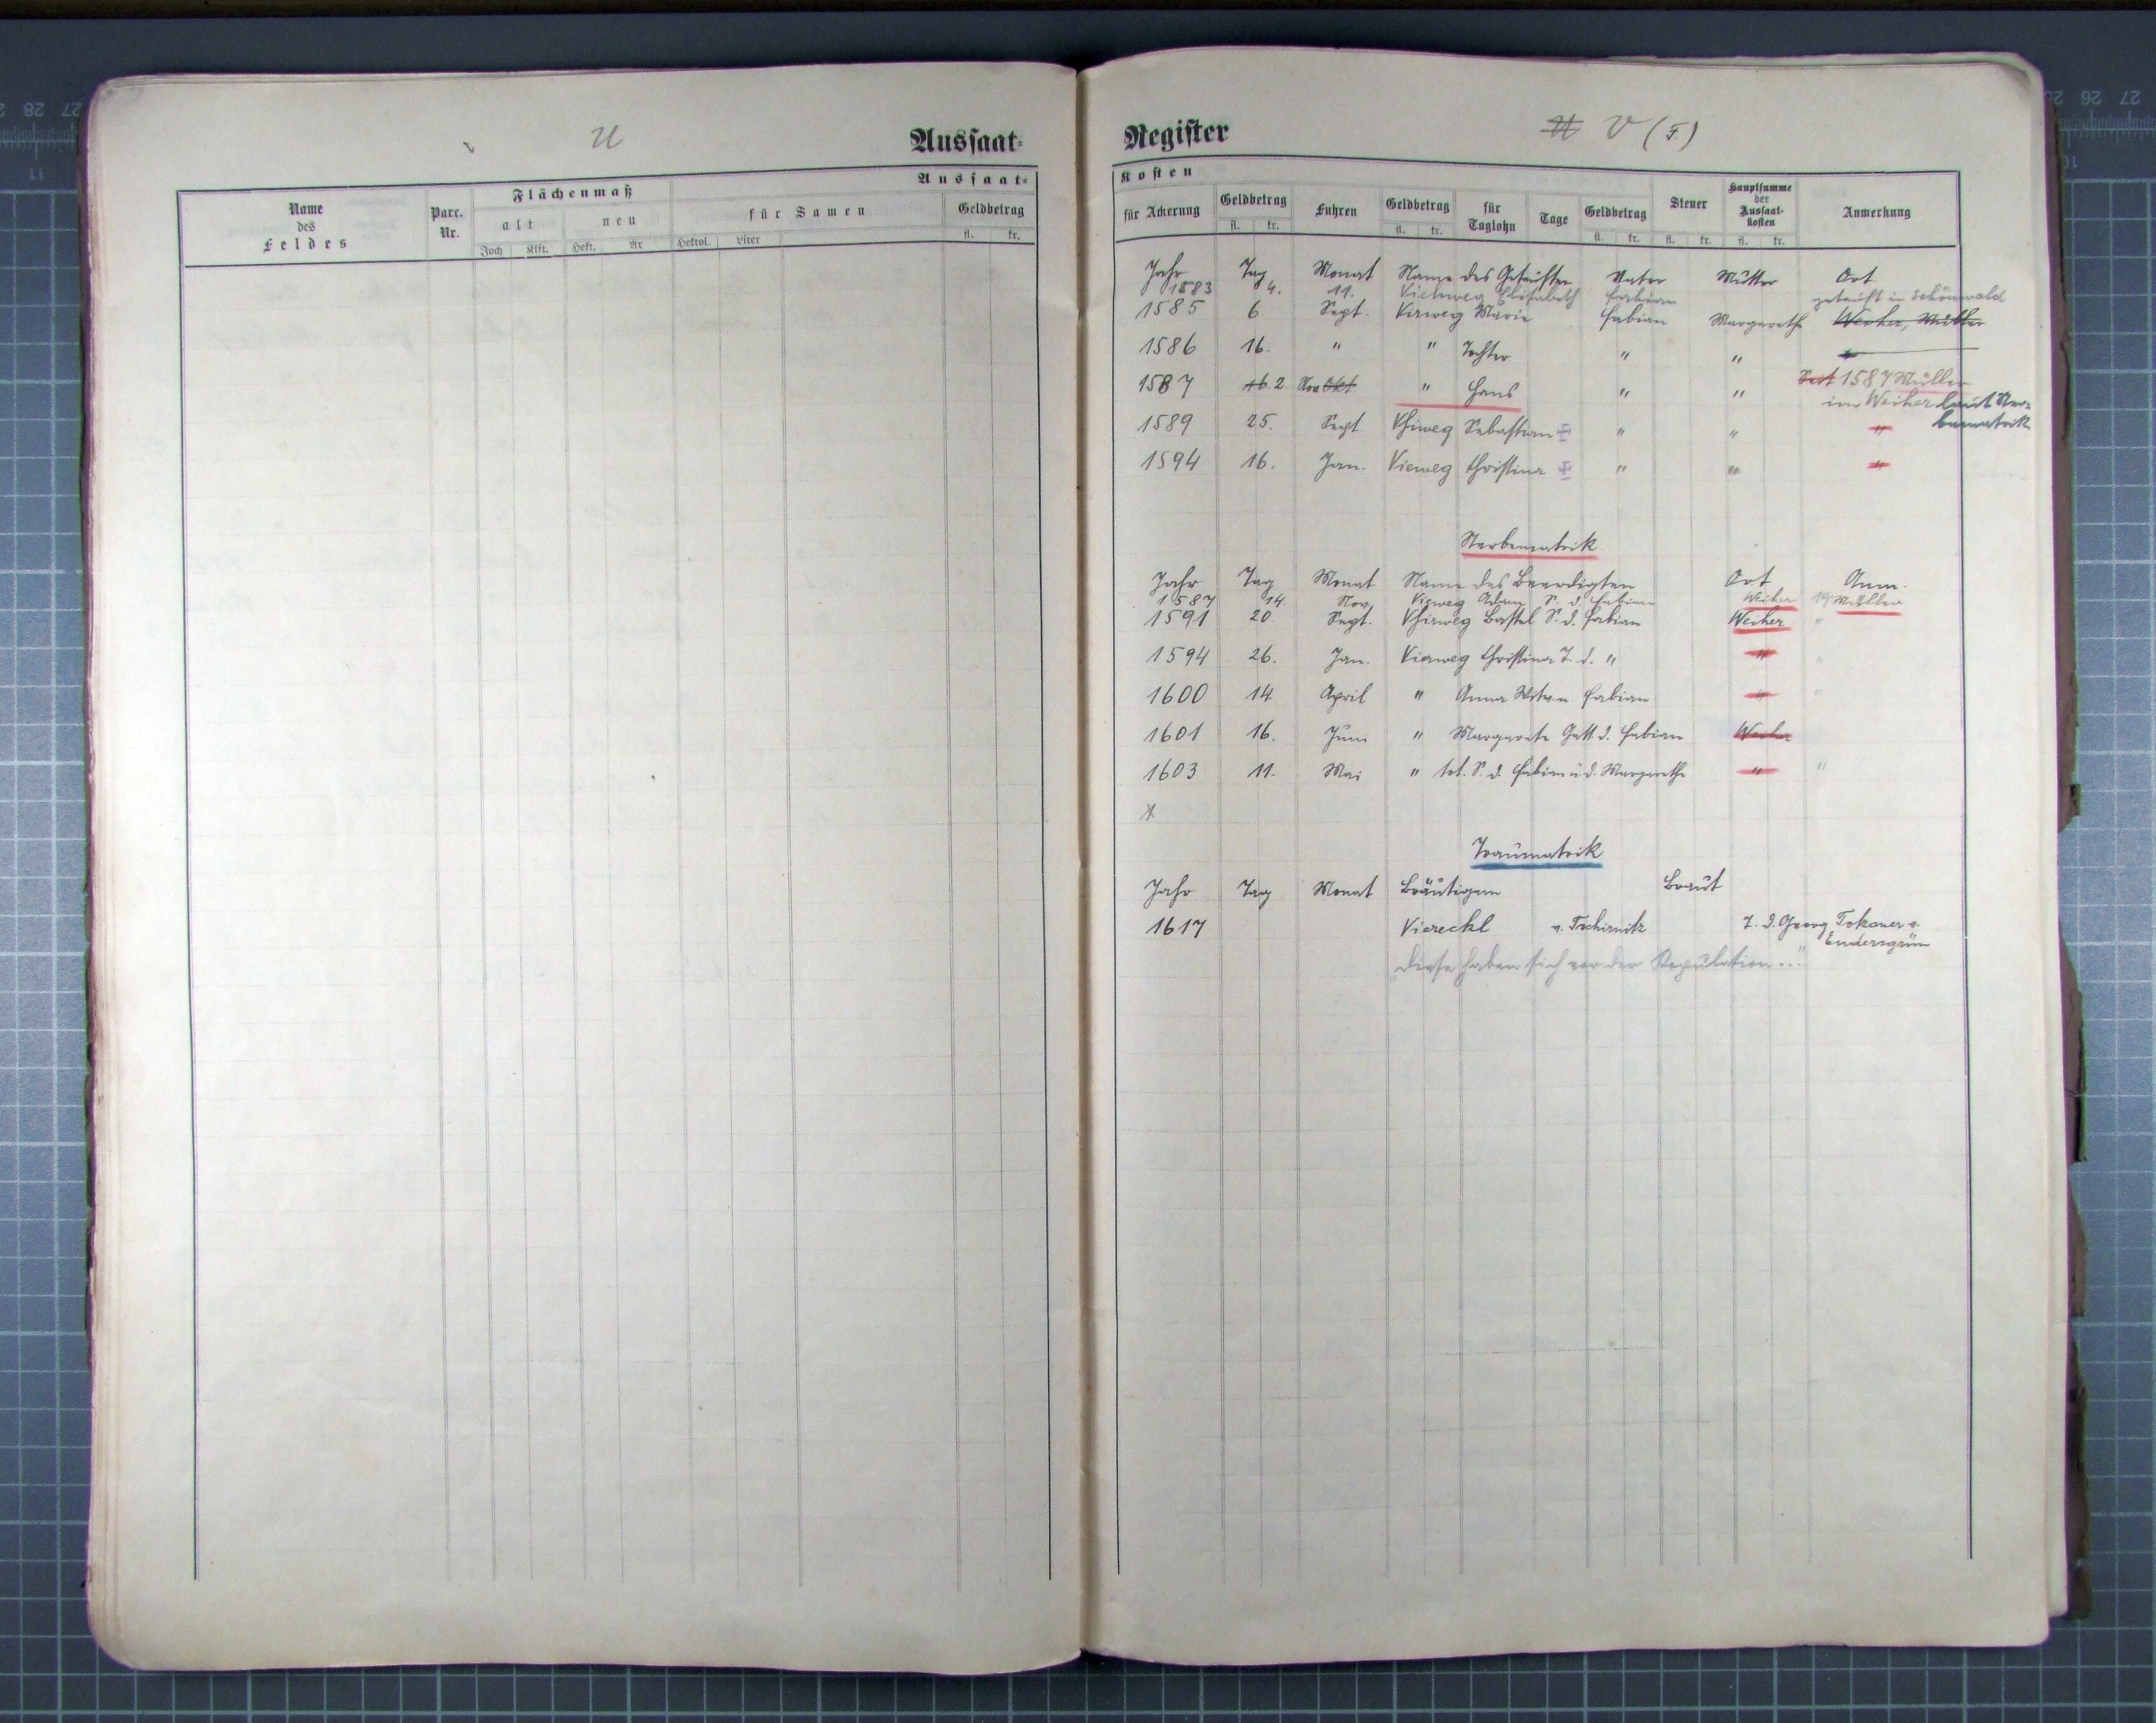 U
Aussaat-
Aussaat-
Name
des
Feldes
Parc.
Nr.
Flächenmaß
alt
neu
für Samen
Geldbetrag
Joch Klft. Hekt. Ar Hektol. Liter fl. kr.
Register
U V (F.)
Kosten
für Ackerung
Geldbetrag
Fuhren
Geldbetrag
für
Taglohn
Tage
Geldbetrag
Steuer
Hauptsumme
der
Aussaat-
kosten
Anmerkung
fl. kr. fl. kr. fl. kr. fl. kr. fl. kr.
Jahr Tag Monat Name des Getauften Vater Mutter Ort
1583 4. 11. Viehweg Elisabeth Fabian getauft in Schönwald
1585 6. Sept. Virweg Marie Fabian Margarethe Weiher, Müller
1586 16. " " Tochter " "
1587 16. 2. Nov Okt " Hans " " Seit 1587 Müller
im Weiher laut Ster-
bematrik
1589 25. Sept. Vhiweg Sebastian " " "
1594 16. Jan. Vieweg Christina " " "
Sterbematrik
Jahr Tag Monat Name des Beerdigten Ort Anm.
1587 14. Nov. Vieweg Adam S. d. Fabian Weiher Müller
1591 20. Sept. Vhirweg Bastel S. d. Fabian Weiher "
1594 26. Jan. Vierweg Christina T. d. " " "
1600 14 April " Anna Witwe Fabian " "
1601 16. Juni " Margarete Gatt. d. Fabian Weiher
1603 11. Mai " tot. S. d. Fabian u. d. Margarethe " "
Traumatrik
Jahr Tag Monat Bräutigam Braut
1617 Viereckl v. Tschirnitz T. d. Georg Tokaner v.
Endersgrün
diese haben sich vor der Kopulation..."